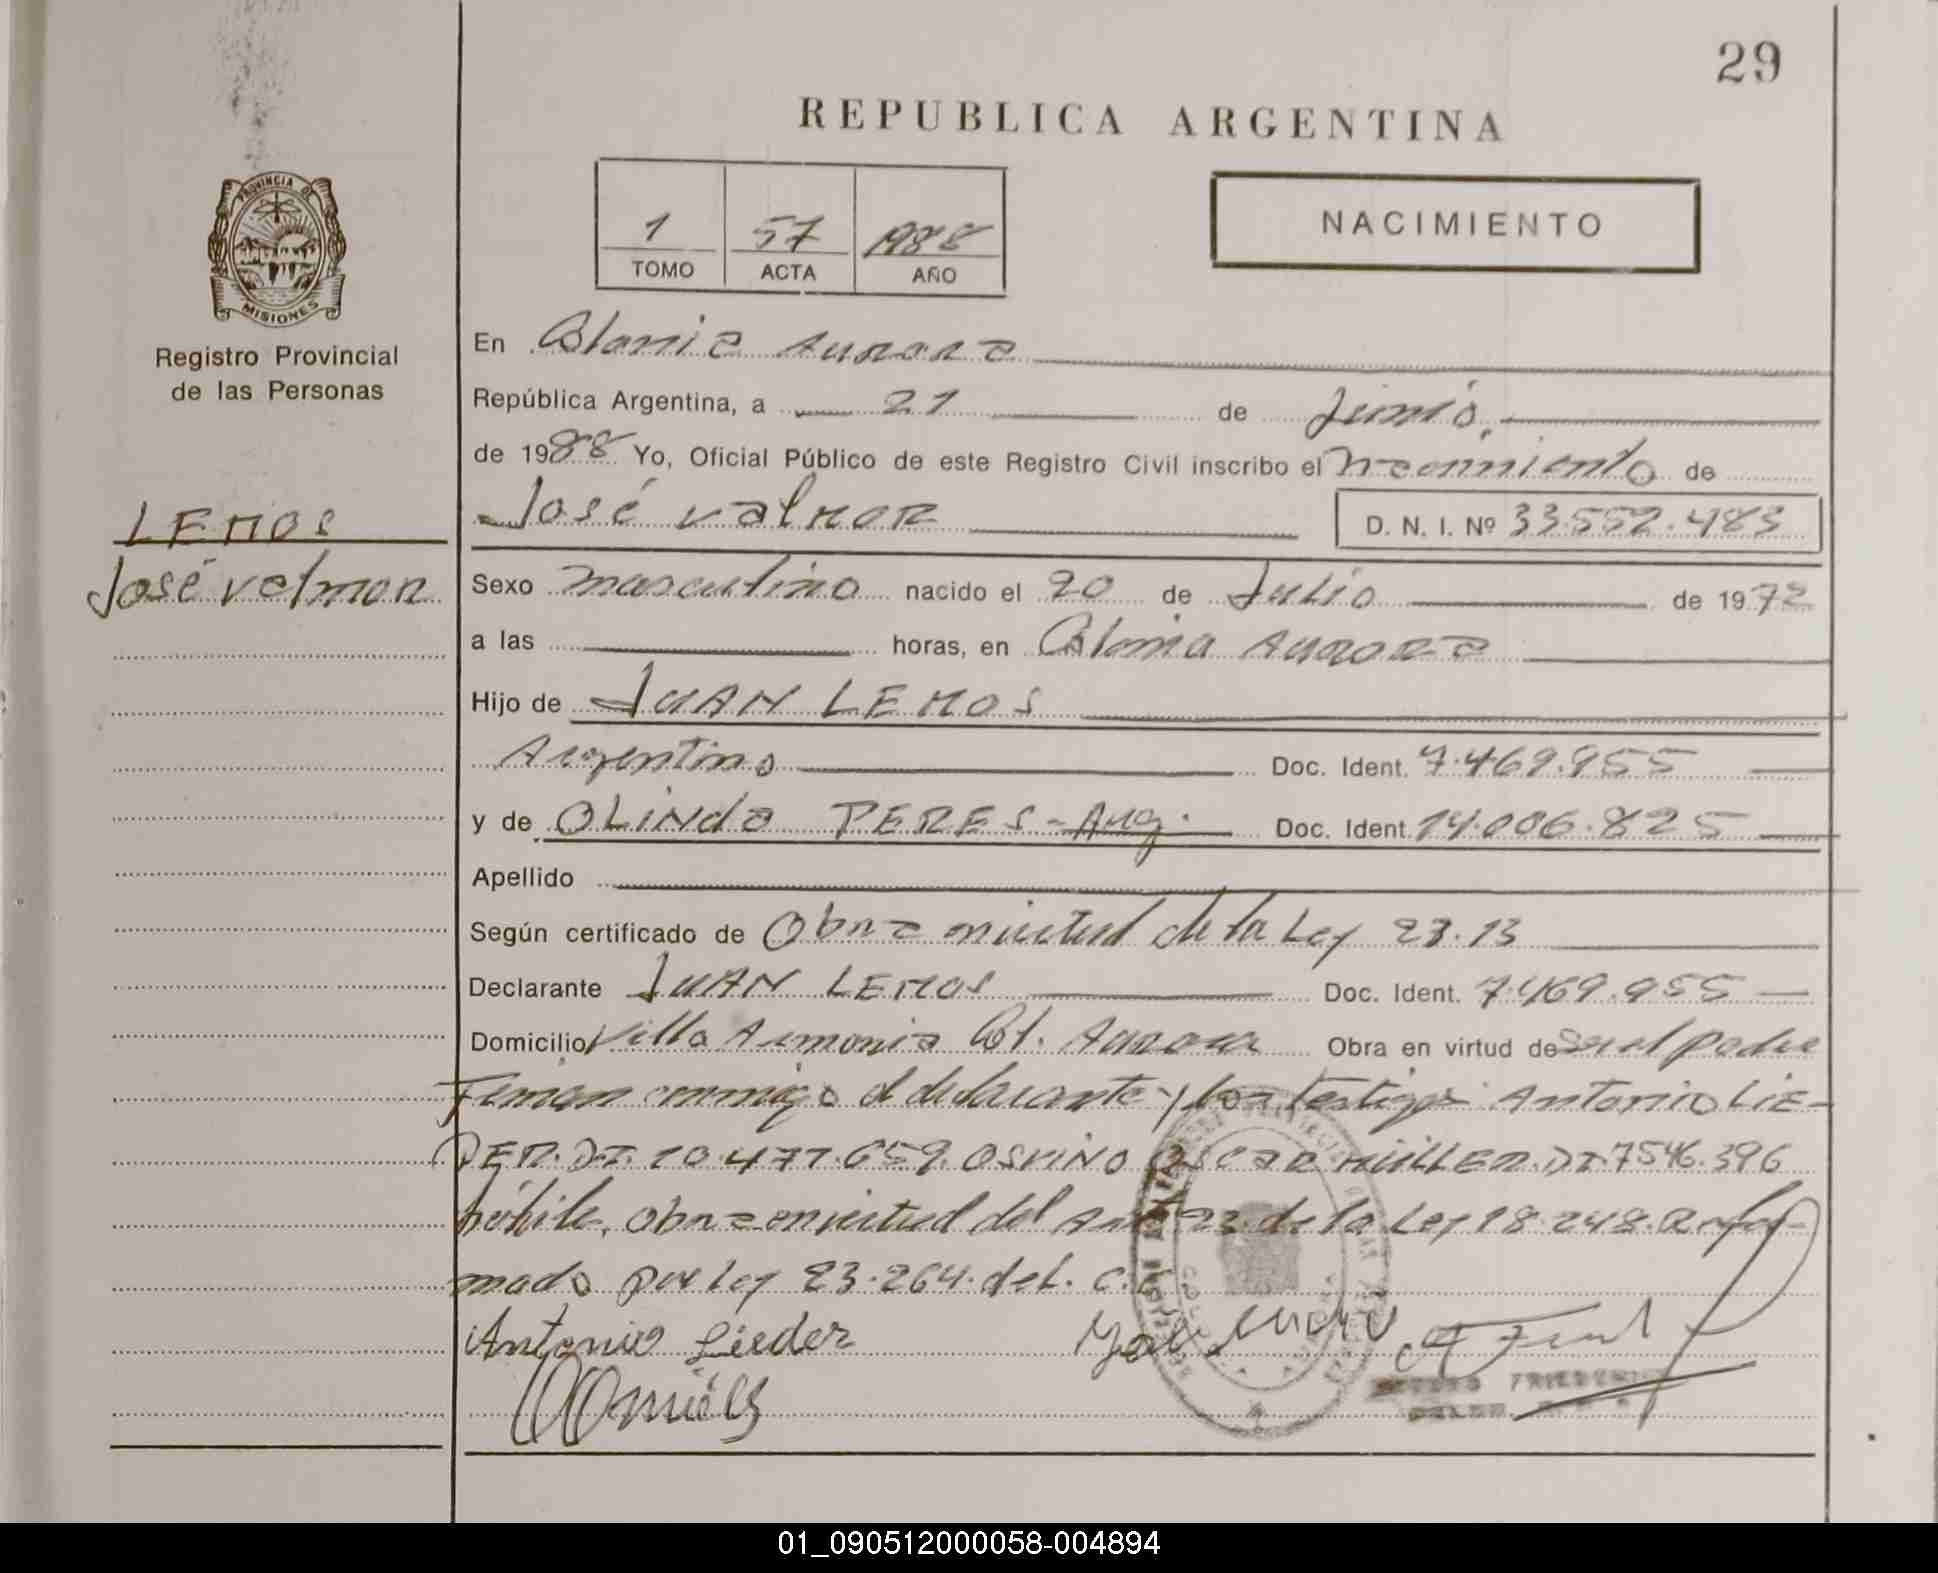 29
REPUBLICA ARGENTINA
1 57 1988
TOMO ACTA AÑO
NACIMIENTO
PROVINCIA DE
MISIONES
Registro Provincial
de las Personas
LEMOS
José Valmor
En Colonia Aurora
República Argentina, a 21 de Junio
de 1988 Yo, Oficial Público de este Registro Civil inscribo el Nacimiento de
José Valmor D. N. I. Nº 33.552.483
Sexo masculino nacido el 20 de Julio de 1972
a las horas, en Colonia Aurora
Hijo de JUAN LEMOS
Argentino Doc. Ident. 7.469.955
y de OLINda PERES-Arg. Doc. Ident. 14.006.825
Apellido
Según certificado de Obra en virtud de la Ley 23.13
Declarante JUAN LEMOS Doc. Ident. 7.469.955
Domicilio Villa Armonia Col. Aurora Obra en virtud de Ser el padre
Firman conmigo el declarante y los testigos Antonio LIE-
DER. DI. 10.477.659. OSVINO OSCAR MÜLLER. DI. 7546.396
hábiles, Obra en virtud del Art 22 de la Ley 18.248. Refor-
mado por Ley 23.264. del. C.C
Antonio Lieder
01_090512000058-004894